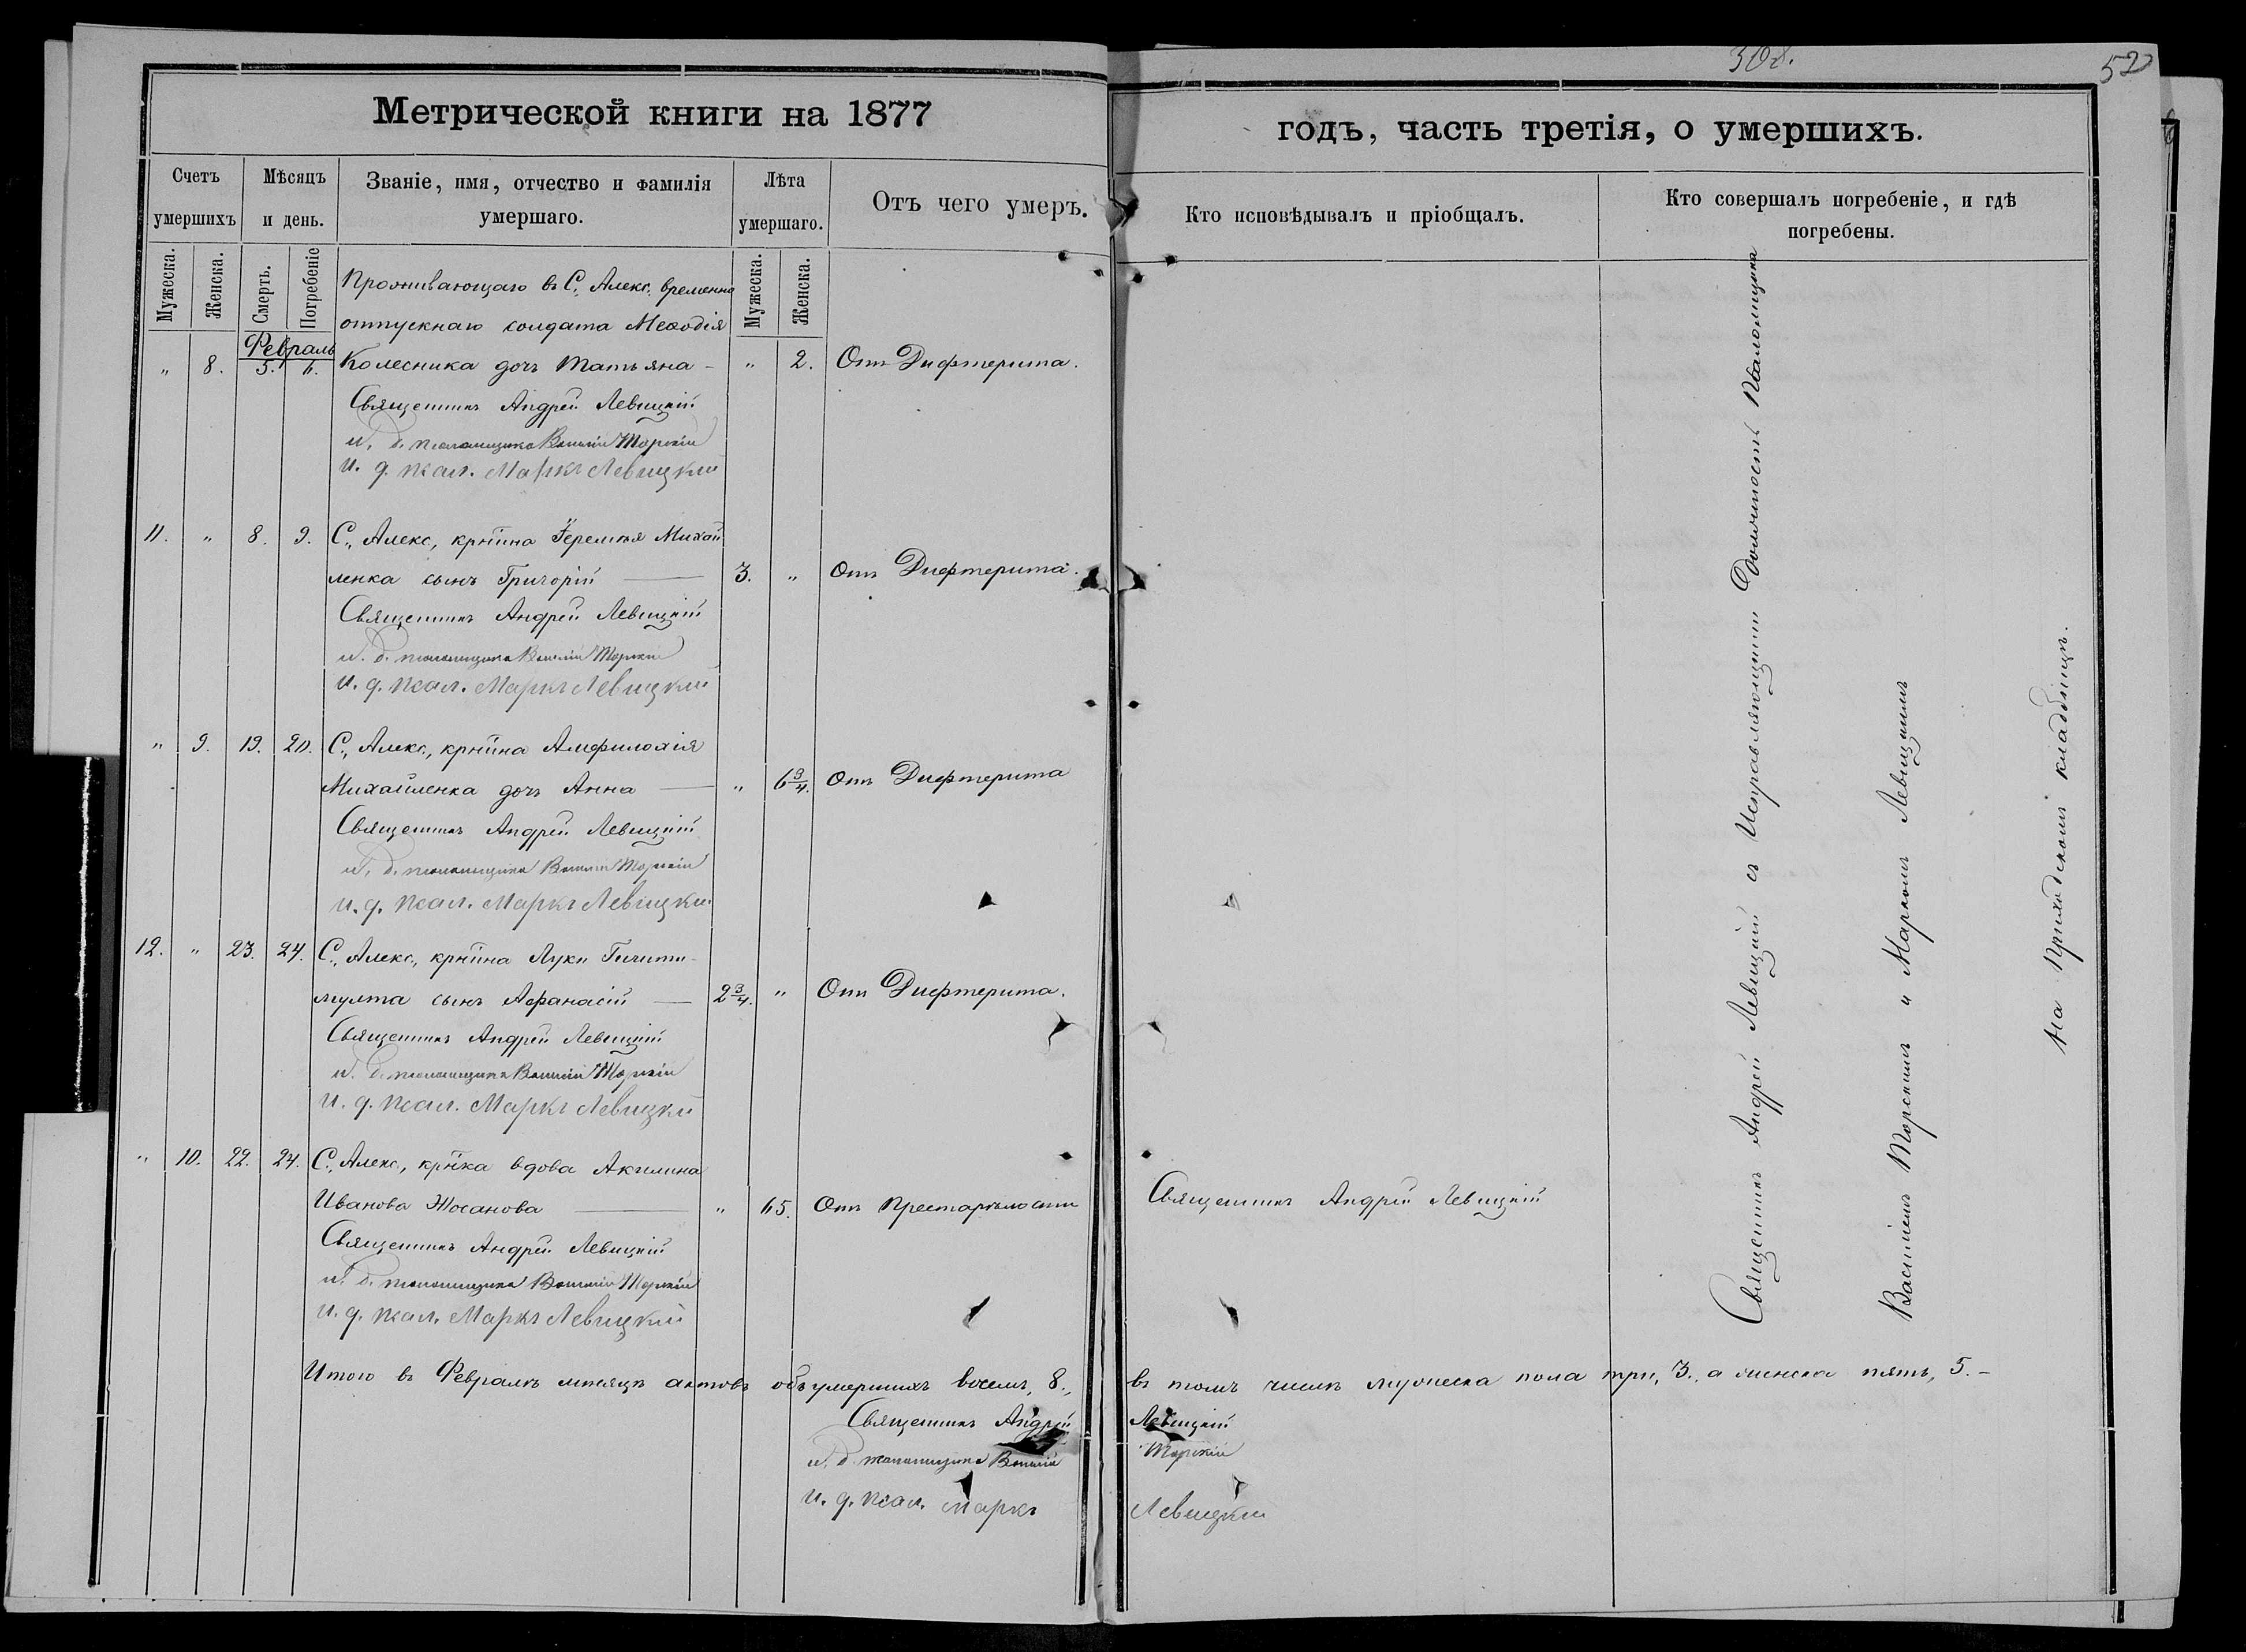 308.
52
Метрической книги на 1877
годъ, часть третія, о умершихъ.
Счетъ умершихъ
Мѣсяцъ и день.
Званіе, имя, отчество и фамилія умершаго.
Лѣта умершаго.
Отъ чего умеръ.
Кто исповѣдывалъ и пріобщалъ.
Кто совершалъ погребеніе, и гдѣ погребены.
Мужеска.
Женска.
Смерть.
Погребеніе
Мужеска.
Женска.
Февраль
Проживающаго въ С., Алекс. временно
отпускнаго солдата Меѳодія
„ 8. 5. 6. Колесника дочь Татьяна – „ 2. Отъ Дифтерита.
Священникъ Андрей Левицкій
и. д. псаломщика Василій Торскій
и. д. псал. Маркъ Левицкій
11. „ 8. 9. С., Алекс, крнина Іеремія Михай
ленка сынъ Григорій — 3. „ Отъ Дифтерита.
Священникъ Андрей Левицкій
и. д. псаломщика Василій Торскій
и. д. псал. Маркъ Левицкій
„ 9. 19. 20. С., Алекс, крнина Амфилохія
Михайленка дочь Анна — „ 6 3/4. Отъ Дифтерита
Священникъ Андрей Левицкій
и. д. псаломщика Василій Торскій
и. д. псал. Маркъ Левицкій
12. „ 23. 24. С., Алекс, крнина Луки
сынъ Афанасій — 2 3/4. „ Отъ Дифтерита.
Священникъ Андрей Левицкій
и. д. псаломщика Василій Торскій
и. д. псал. Маркъ Левицкій
„ 10. 22. 24. С., Алекс, крнка вдова Акилина
Иванова Жосанова — „ 65. Отъ Престарѣлости Священникъ Андрей Левицкій
Священникъ Андрей Левицкій
и. д. псаломщика Василій Торскій
и. д. псал. Маркъ Левицкій
Итого въ Февралѣ мѣсяцѣ актовъ объ умершихъ восемь, 8., въ томъ числѣ мужеска пола три, 3., а женска пять, 5. –
Священникъ Андрей Левицкій
и. д. псаломщика Василій Торскій
и. д. псал. Маркъ Левицкій
Священникъ Андрей Левицкій съ Исправляющими Должность Псаломщика
Василіемъ Торскимъ и Маркомъ Левицкимъ
На Приходскомъ кладбищѣ.